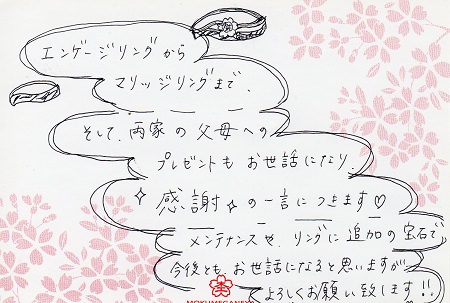 エンゲージリングから
マリッジリングまで、
そして、両家の父母への
プレゼントもお世話になり、
感謝の一言につきます♡
メンテナンスや、リングに追加の宝石で、
今後とも、お世話になると思いますが
よろしくお願い致します!!